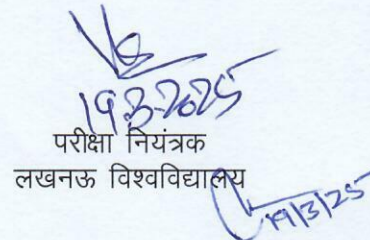 19-3-2025
परीक्षा नियंत्रक
लखनऊ विश्वविद्यालय
19/3/25